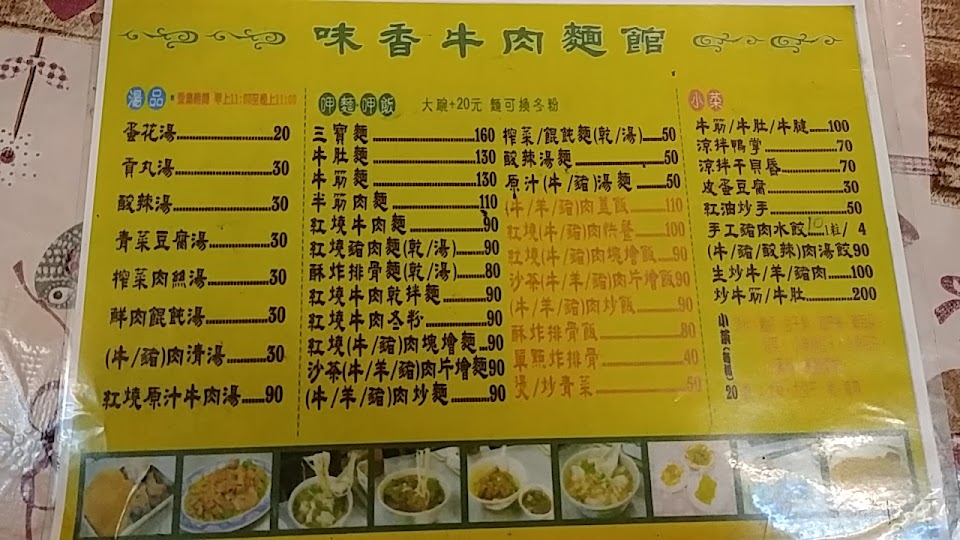 味香牛肉麵館
湯品
蛋花湯 20
貢丸湯 30
酸辣湯 30
青菜豆腐湯 30
榨菜肉絲湯 30
鮮肉餛飩湯 30
(牛/豬)肉清湯 30
紅燒原汁牛肉湯 90
呷麵呷飯 大碗+20元 麵可換冬粉
三寶麵 160
牛肚麵 130
牛筋麵 130
半筋肉麵 110
紅燒牛肉麵 90
紅燒豬肉麵(乾/湯) 90
酥炸排骨麵(乾/湯) 80
紅燒牛肉乾拌麵 90
紅燒牛肉冬粉 90
紅燒(牛/豬)肉塊燴麵 90
沙茶(牛/羊/豬)肉片燴麵90
(牛/羊/豬)肉炒麵 90
榨菜/餛飩麵(乾/湯) 50
酸辣湯麵 50
原汁(牛/豬)湯麵 50
(牛/羊/豬)肉蓋飯 110
紅燒(牛/豬)肉快餐 100
紅燒(牛/豬)肉塊燴飯 90
沙茶(牛/羊/豬)肉片燴飯90
(牛/羊/豬)肉炒飯 90
酥炸排骨飯 80
單點炸排骨 40
燙/炒青菜 50
小菜
牛筋/牛肚/牛腱 100
涼拌鴨掌 70
涼拌干貝唇 70
皮蛋豆腐 30
紅油炒手 50
手工豬肉水餃10 1粒/ 4
(牛/豬/酸辣)肉湯餃90
生炒牛/羊/豬肉 100
炒牛筋/牛肚 200
20